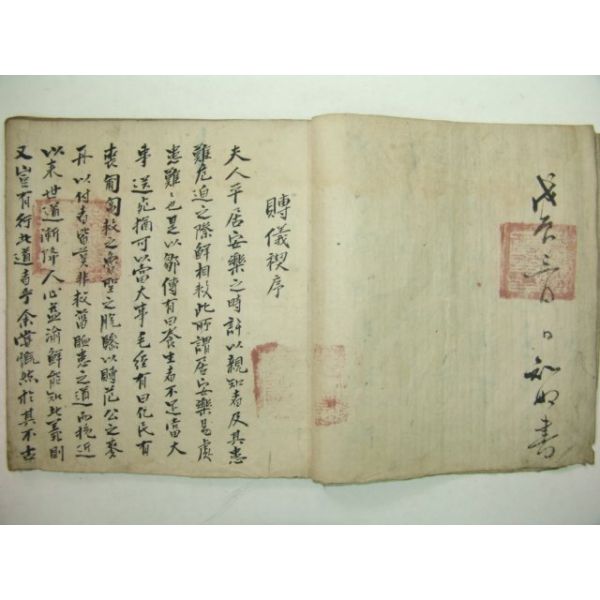 戊寅三月 日 書
賻儀禊序
夫人平居安樂之時許以親知者及其患
難危迫之際鮮相救此所謂居安樂易處
患難々也是以鄒傳有曰養生者不足當大
事送死猶可以當大事毛經有曰凡民有
喪匍匐救之魯聖之脫驂以賻范公之麥
舟以付者皆莫非救患之道而挽近
以来世道漸降人心益渝鮮能知此義則
又豈有行此道者乎余嘗慨然於其不古